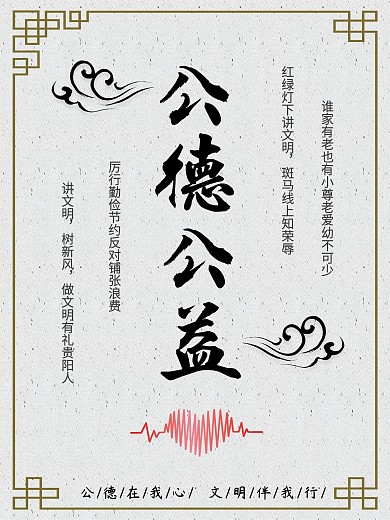 公德公益
谁家有老也有小尊老爱幼不可少
红绿灯下讲文明，斑马线上知荣辱
厉行勤俭节约反对铺张浪费
讲文明，树新风，做文明有礼贵阳人
公/德/在/我/心/ 文/明/伴/我/行/